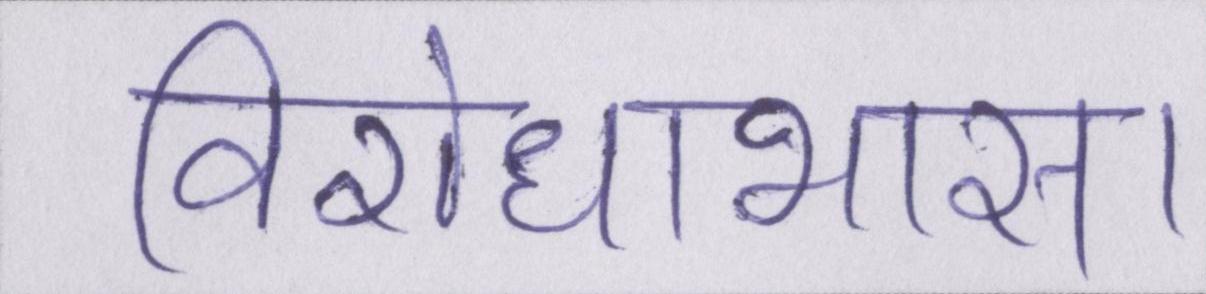 विरोधाभास।